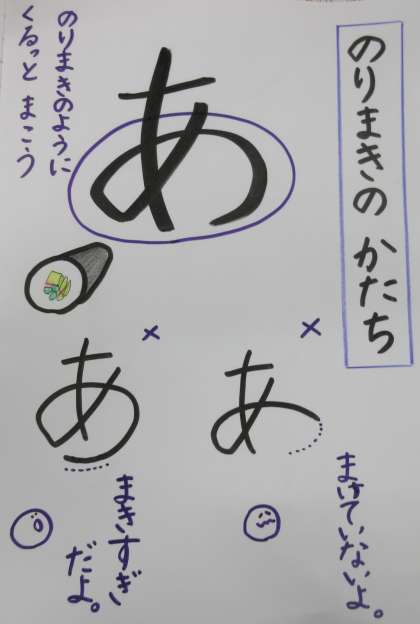 のりまきの かたち
あ
のりまきのように
くるっと まこう
×
あ
まけていないよ。
×
あ
まきすぎ
だよ。